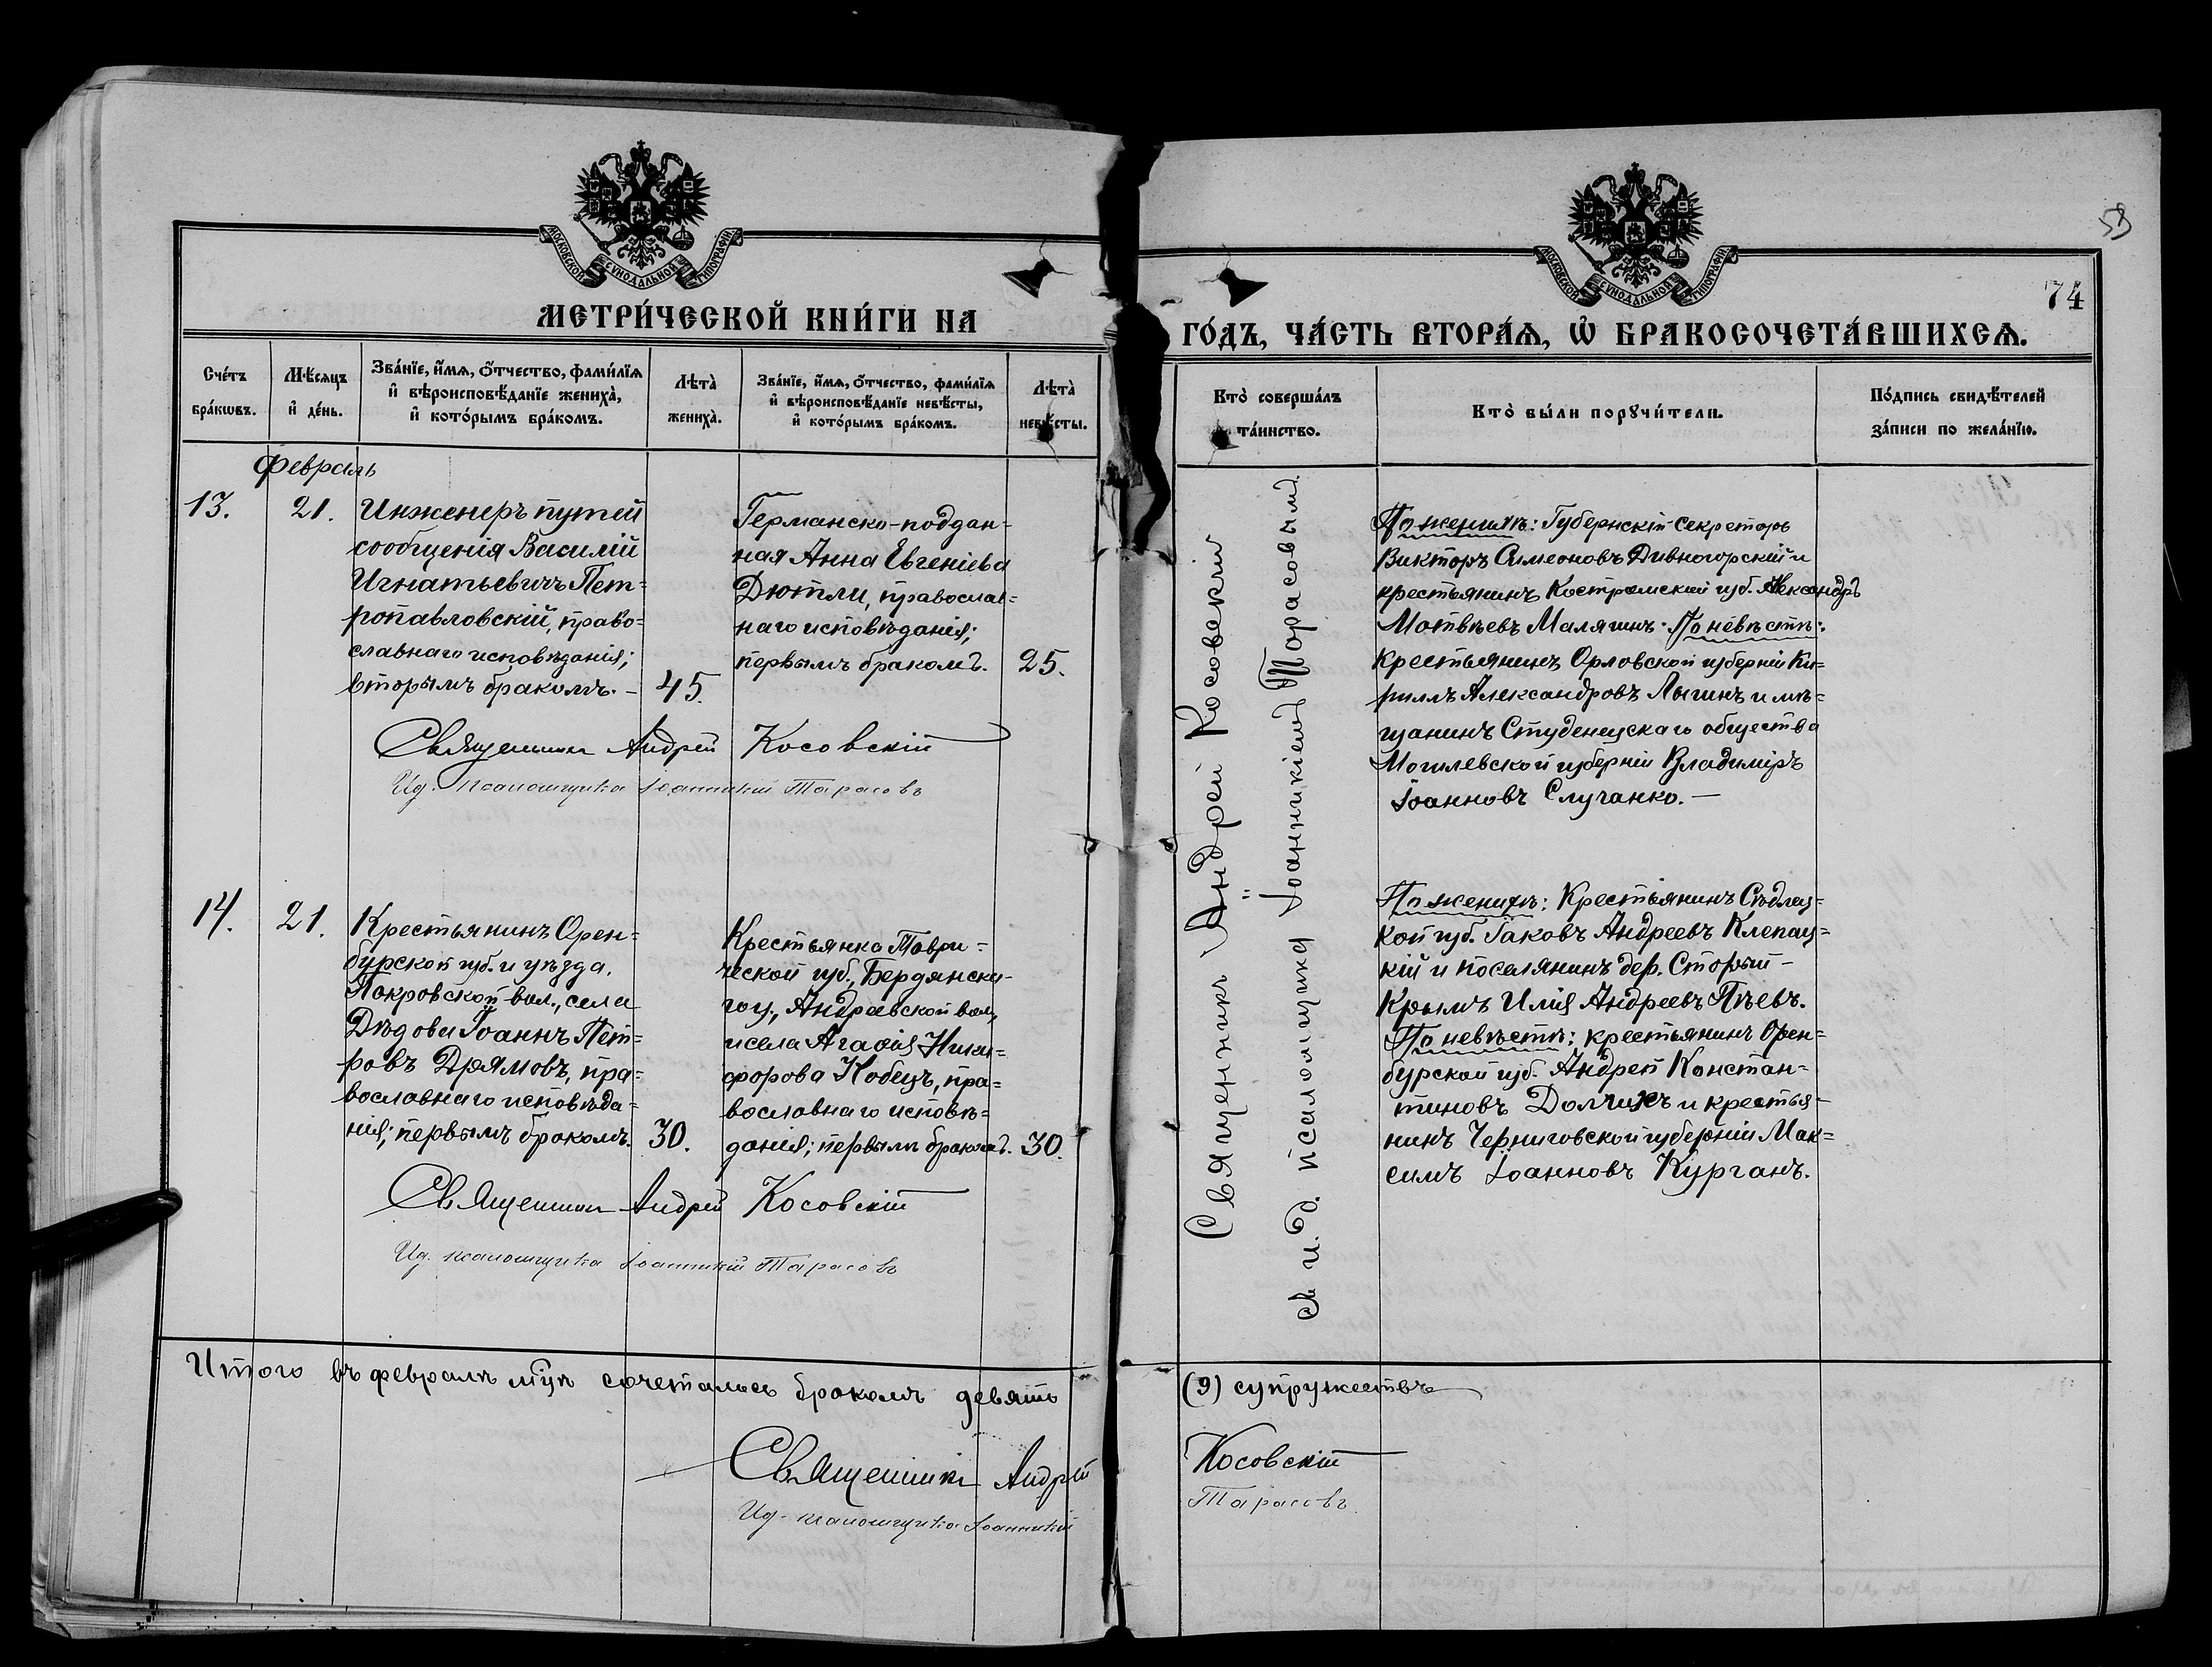 МОСКОВСКОЙ СѴНОДАЛЬНОЙ ТИПОГРАФІИ
МЕТРИ́ЧЕСКОЙ КНИ́ГИ НА
Сче́тъ бра́кѡвъ.
Мѣ́сяцъ и҆ де́нь.
Зва́нїе, и҆́мѧ, ѻ҆́тчество, фами́лїѧ
и҆ вѣроисповѣ́данїе жениха̀,
и҆ кото́рымъ бра́комъ.
Лѣта̀ жениха̀.
Зва́нїе, и҆́мѧ, ѻ҆́тчество, фами́лїѧ
и҆ вѣроисповѣ́данїе невѣ́сты,
и҆ кото́рымъ бра́комъ.
Лѣта̀ невѣ́сты.
Февраль
13.
21.
Инженеръ путей
сообщенія Василій
Игнатьевичъ Пет=
ропавловскій, право=
славнаго исповѣданія;
вторымъ бракомъ. –
45.
Германско-поддан-
ная Анна Евгеніева
Дютли, православ=
наго исповѣданія;
первымъ бракомъ.
25.
Священникъ Андрей Косовскій
И.д. псаломщика Іоанникій Тарасовъ
14.
21.
Крестьянинъ Орен=
бургской губ. и уѣзда,
Покровской вол., села
Дѣдова Іоаннъ Пет=
ровъ Дрямовъ, пра=
вославнаго исповѣда=
нія; первымъ бракомъ.
30.
Крестьянка Таври=
ческой губ., Бердянска-
го у., Андреевской вол.,
и села Агаѳія Ники=
форова Кобецъ, пра=
вославнаго исповѣ=
данія; первымъ бракомъ.
30.
Священникъ Андрей Косовскій
И.д. псаломщика Іоанникій Тарасовъ
Итого въ февралѣ м-цѣ сочеталось бракомъ девять
Священникъ Андрей
И.д. псаломщика Іоанникій
53
74
МОСКОВСКОЙ СѴНОДАЛЬНОЙ ТИПОГРАФІИ
ГО́ДЪ, ЧА́СТЬ ВТОРА́Ѧ, Ѡ҆ БРАКОСОЧЕТА́ВШИХСѦ.
Кто̀ соверша́лъ та́инство.
Кто̀ бы́ли порꙋчи́тели.
По́дпись свидѣ́телей
за́писи по жела́нїю.
Священникъ Андрей Косовскій
съ и.д. псаломщика Іоанникіемъ Тарасовымъ.
По женихѣ: Губернскій Секретарь
Викторъ Симеоновъ Дивногорскій и
крестьянинъ Костромской губ. Александръ
Матвѣевъ Малягинъ. По невѣстѣ:
крестьянинъ Орловской губерніи Ки=
риллъ Александровъ Лыгинъ и мѣ=
щанинъ Студенецкаго общества
Могилевской губерніи Владиміръ
Іоанновъ Случанко. –
По женихѣ: Крестьянинъ Сѣдлец=
кой губ. Іаковъ Андреевъ Клепац=
кій и поселянинъ дер. Старый-
Крымъ Илія Андреевъ Пѣевъ.
По невѣстѣ: крестьянинъ Орен=
бургской губ. Андрей Констан=
тиновъ Долгихъ и крестья-
нинъ Черниговской губерніи Мак=
симъ Іоанновъ Курганъ.
(9) супружествъ
Косовскій
Тарасовъ